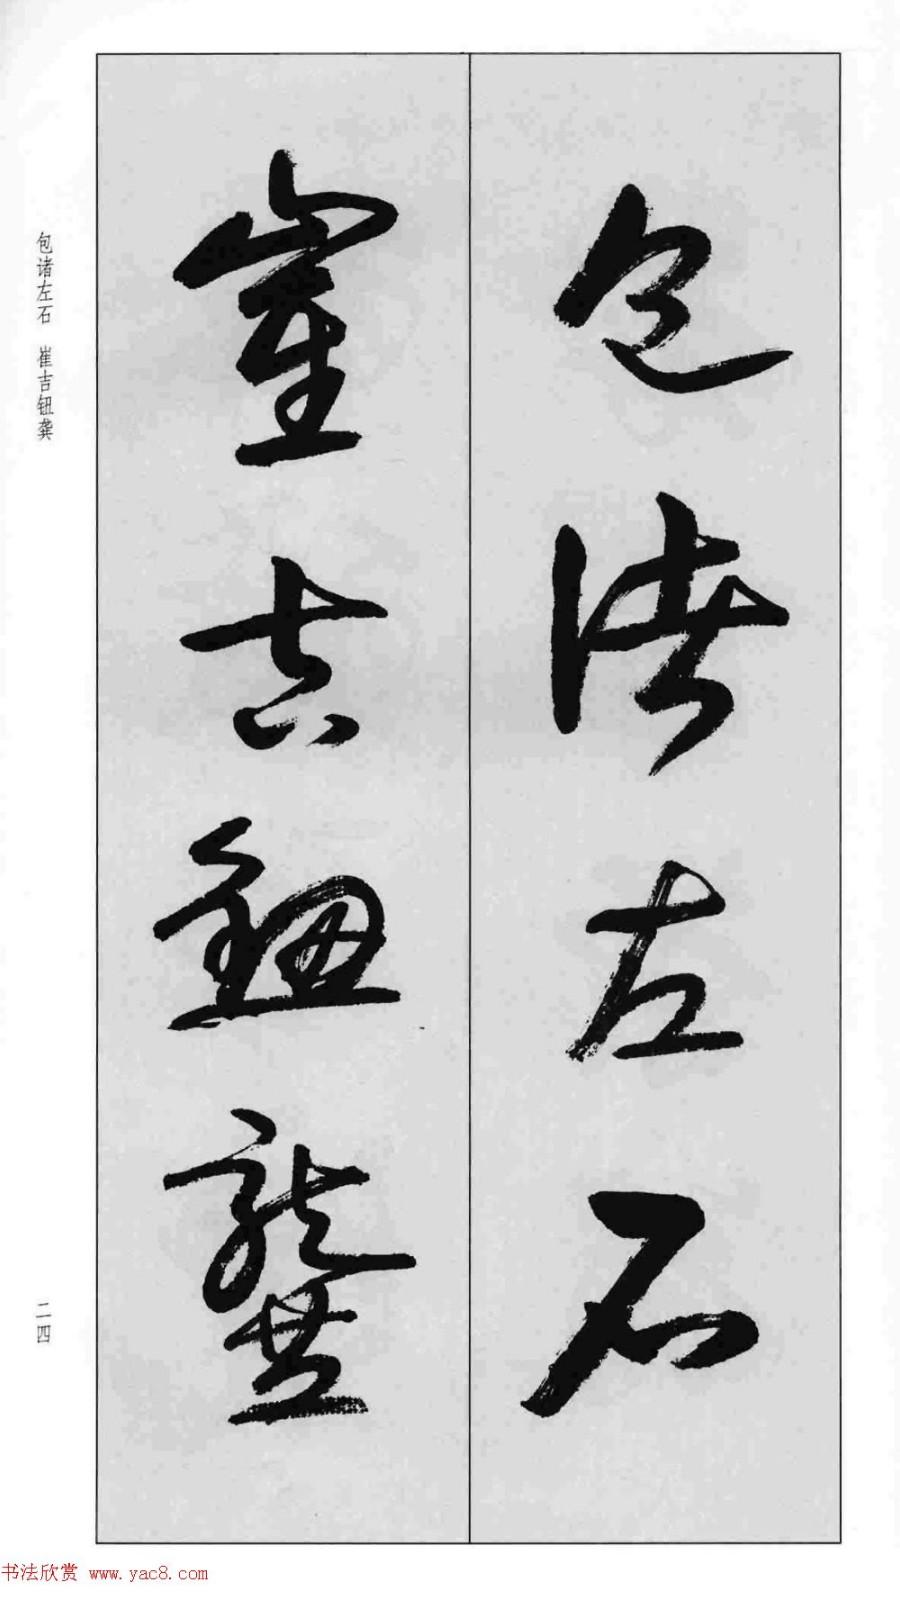 包诸左石
崔吉钮龚
包诸左石 崔吉钮龚
二四
书法欣赏 www.yac8.com